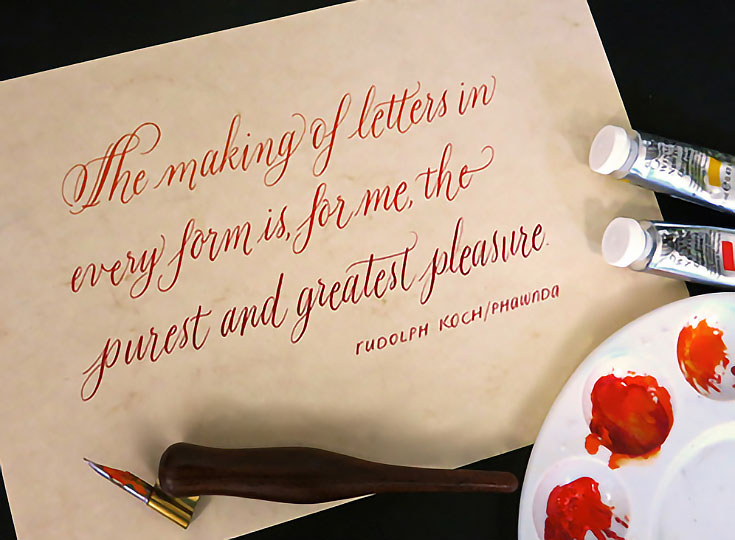 The making of letters in
every form is, for me, the
purest and greatest pleasure.
rUDOLPH KOCH/PHAWNDA